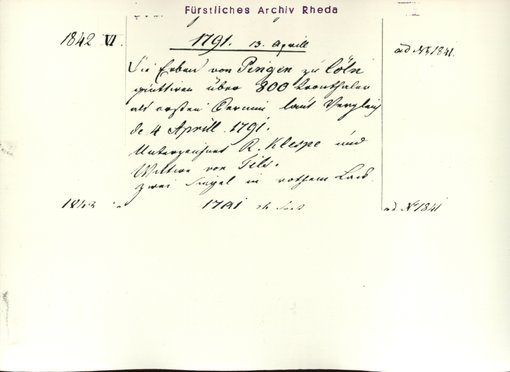 Fürstliches Archiv Rheda
1842 VI. 1791. 13. Aprill ad No 1841.
Die Erben von Pingen zu Cöln
quittiren über 800 Kronthaler
als ersten Termin laut Vergleich
de 4 Aprill 1791.
Unterzeichnet R. Klespe und
Wittwe von Tils.
zwei Siegel in rothem Lack
1843 1791 ad No 1841